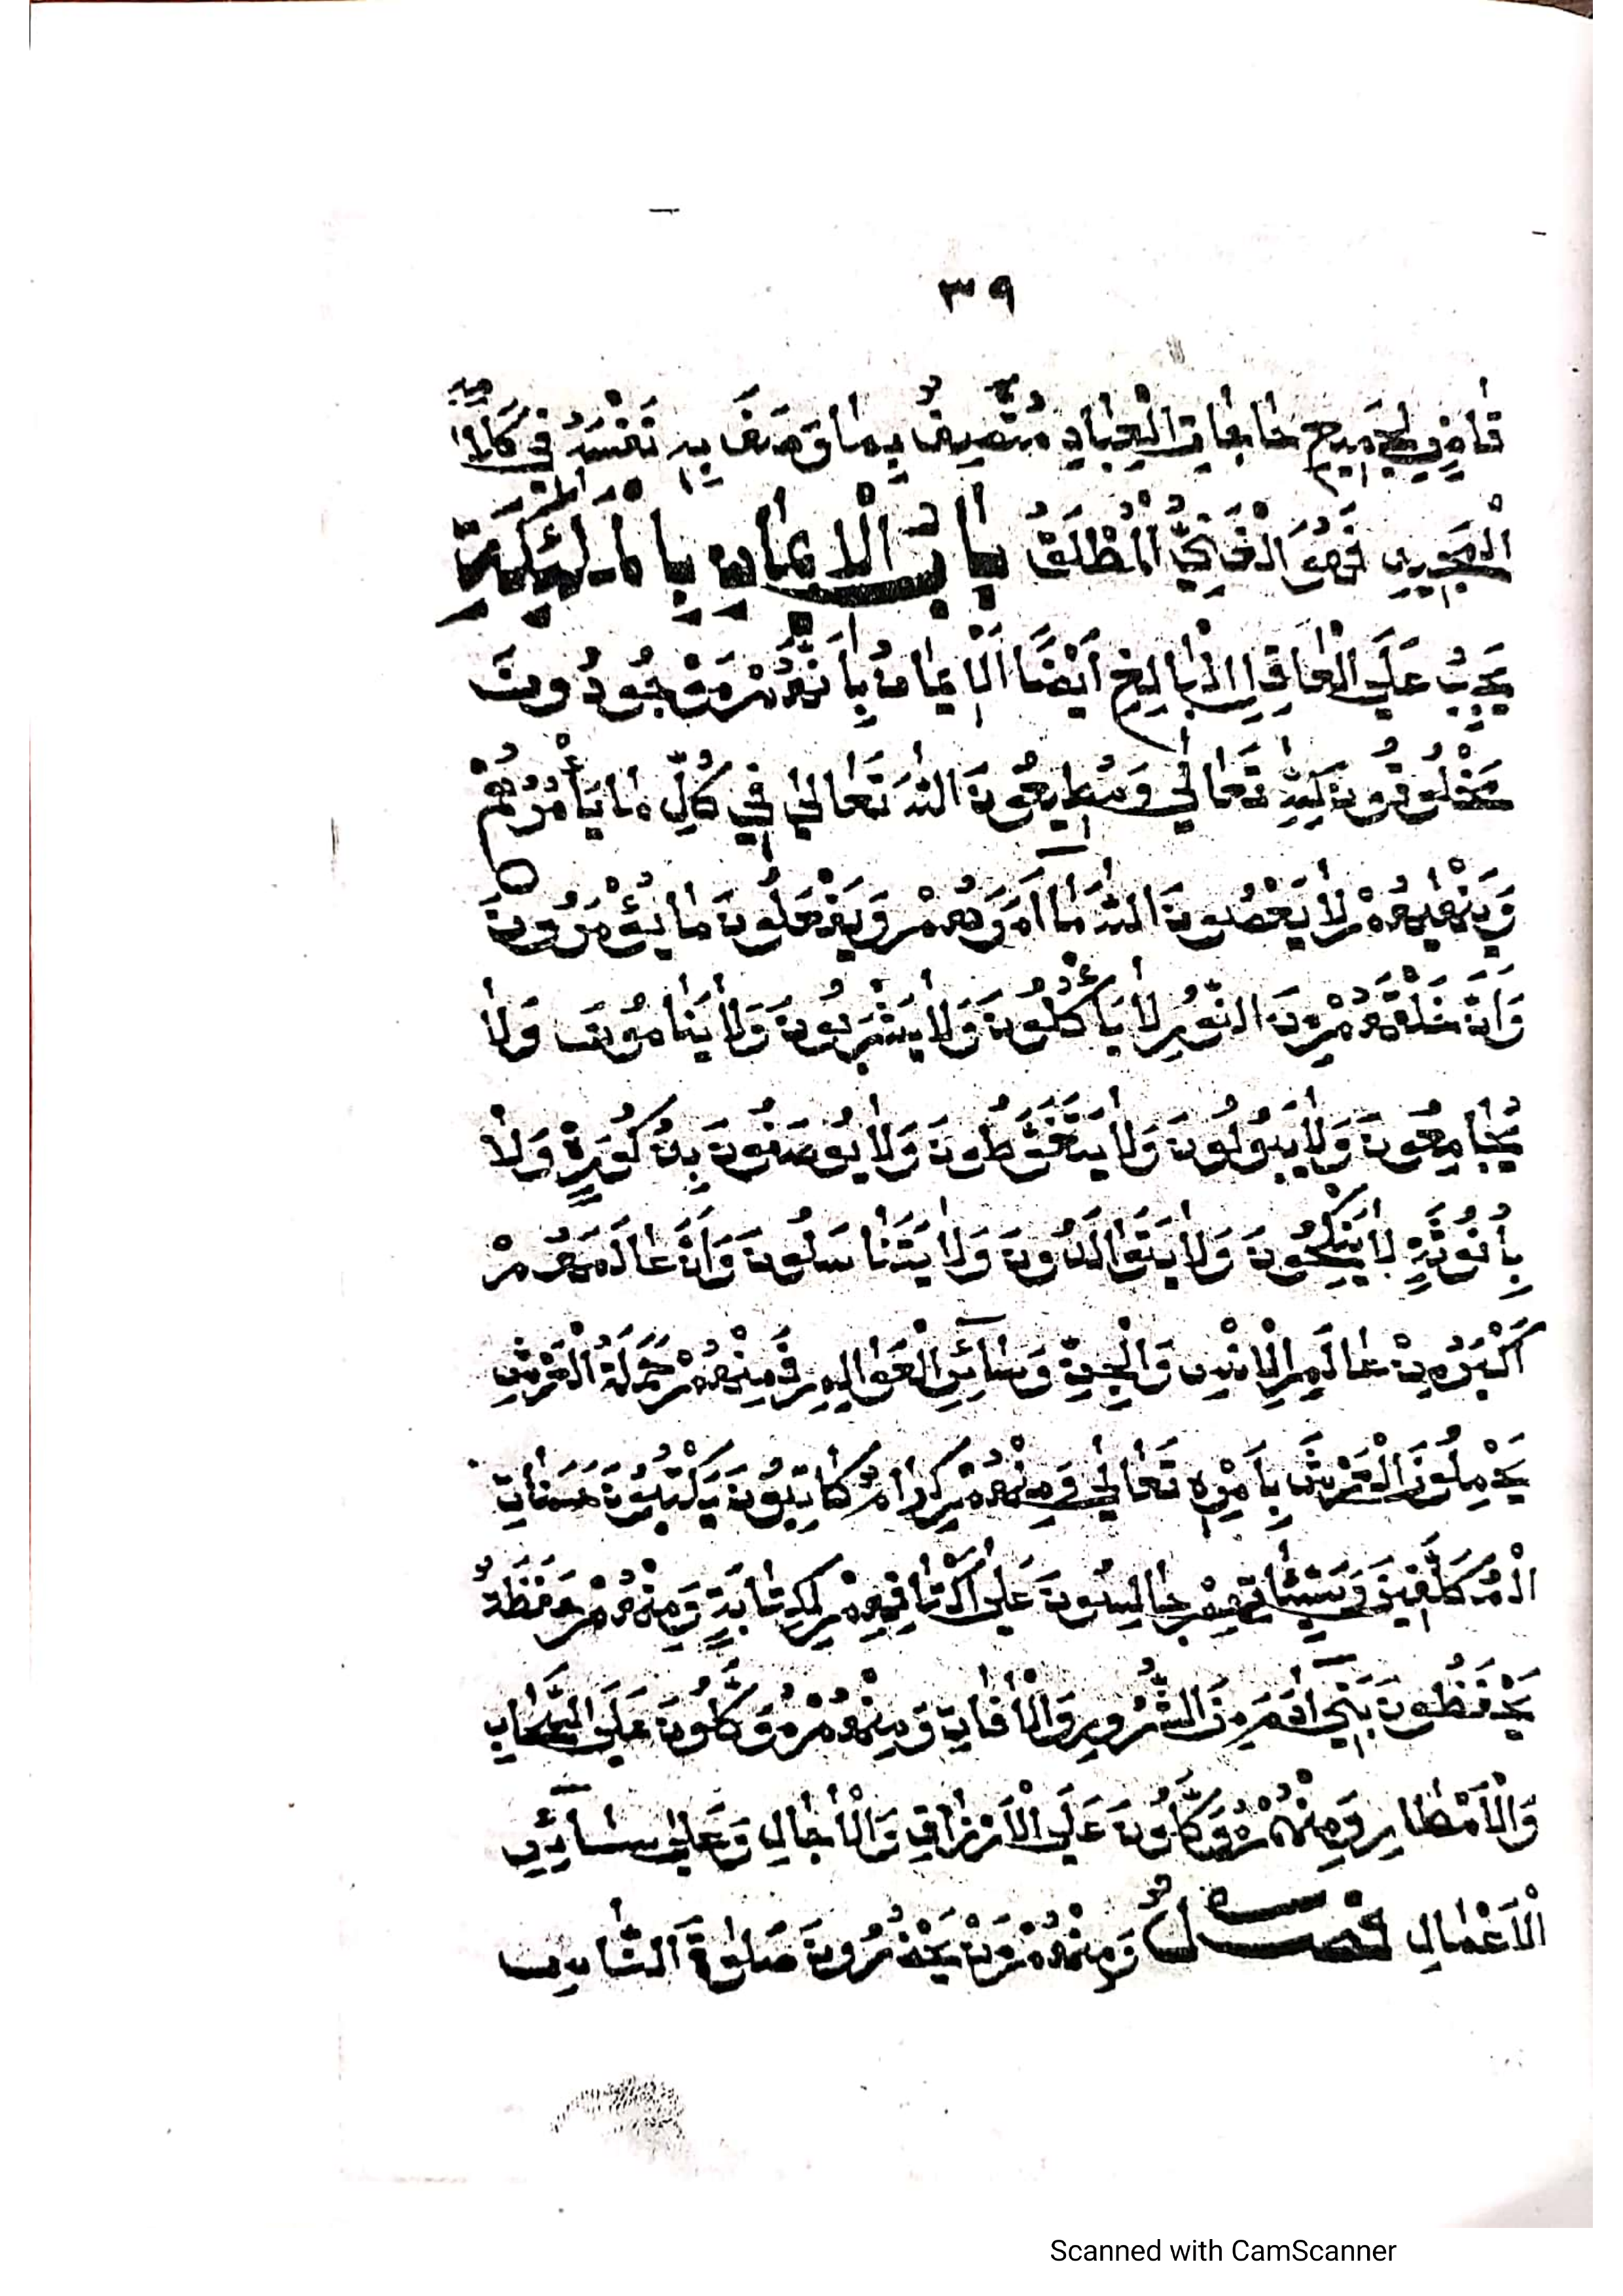 ٣٩
قَاضِي لِجَمِيعِ حَاجَاتِ الْعِبَادِ مُتَّصِفٌ بِمَا وَصَفَ بِهِ نَفْسَهُ فِي كَلَامِهِ
الْمَجِيدِ فَهُوَ الْغَنِيُّ الْمُطْلَقُ بَابُ الْاِيمَانِ بِالْمَلٰئِكَةِ
يَجِبُ عَلَى الْعَاقِلِ الْبَالِغِ اَيْضًا اَلْاِيمَانُ بِاَنَّهُمْ مَوْجُودُونَ
مَخْلُوقُونَ لِلّٰهِ تَعَالٰى وَمُطِيعُونَ اللّٰهَ تَعَالٰى فِي كُلِّ مَا يَأْمُرُهُمْ
وَيَنْهٰيهِمْ لَا يَعْصُونَ اللّٰهَ مَا اَمَرَهُمْ وَيَفْعَلُونَ مَا يُؤْمَرُونَ
وَاَنَّ خَلْقَهُمْ مِنَ النُّورِ لَا يَأْكُلُونَ وَلَا يَشْرَبُونَ وَلَا يَنَامُونَ وَلَا
يُجَامِعُونَ وَلَا يَبُولُونَ وَلَا يَتَغَوَّطُونَ وَلَا يُوصَفُونَ بِذُكُورَةٍ وَلَا
بِاُنُوثَةٍ لَا يَنْكِحُونَ وَلَا يَتَوَالَدُونَ وَلَا يَتَنَاسَلُونَ وَاَنَّ عَالَمَهُمْ
اَكْبَرُ مِنْ عَالَمِ الْاِنْسِ وَالْجِنِّ وَسَائِرِ الْعَوَالِمِ فَمِنْهُمْ حَمَلَةُ الْعَرْشِ
يَحْمِلُونَ الْعَرْشَ بِاَمْرِهِ تَعَالٰى وَمِنْهُمْ كِرَامٌ كَاتِبُونَ يَكْتُبُونَ حَسَنَاتِ
الْمُكَلَّفِينَ وَسَيِّئَاتِهِمْ جَالِسُونَ عَلٰى اَكْتَافِهِمْ لِكِتَابَةٍ وَمِنْهُمْ حَفَظَةٌ
يَحْفَظُونَ بَنِي اٰدَمَ مِنَ الشُّرُورِ وَالْاٰفَاتِ وَمِنْهُمْ مُوَكَّلُونَ عَلَى السَّحَابِ
وَالْاَمْطَارِ وَمِنْهُمْ مُوَكَّلُونَ عَلَى الْاَرْزَاقِ وَالْاٰجَالِ وَعَلٰى سَائِرِ
الْاَعْمَالِ فَصْلٌ وَمِنْهُمْ مَنْ يَحْضُرُونَ صَلٰوةَ النَّاسِ
Scanned with CamScanner